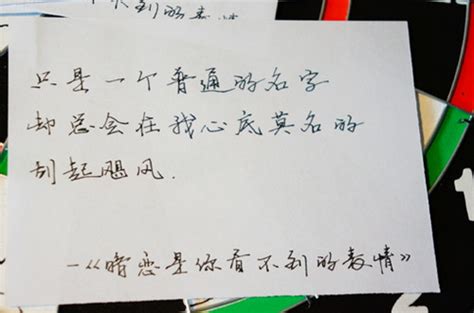 到的表情
只是一个普通的名字
却总会在我心底莫名的
刮起飓风.
—《暗恋是你看不到的表情》
1